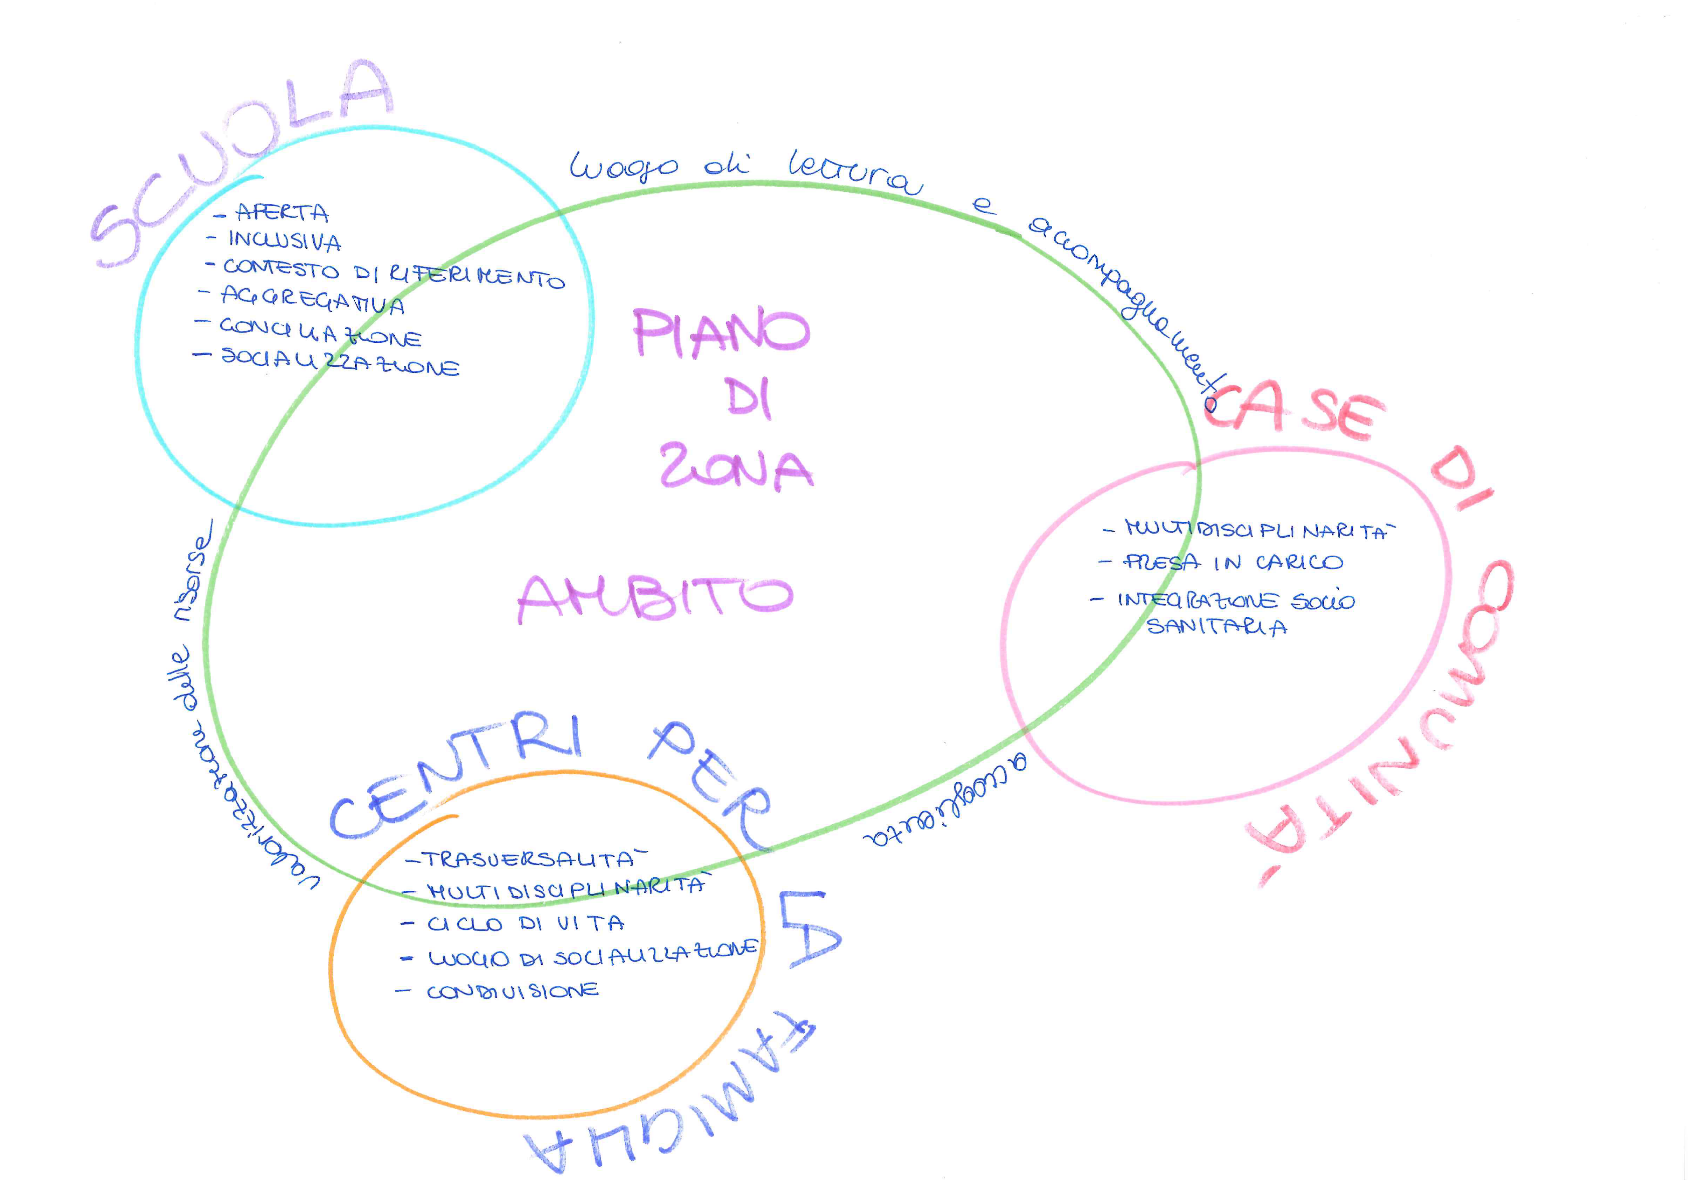 SCUOLA
- APERTA
- INCLUSIVA
- CONTESTO DI RIFERIMENTO
- AGGREGATIVA
- CONCILIAZIONE
- SOCIALIZZAZIONE
luogo di lettura e accompagnamento
PIANO
DI
ZONA
AMBITO
CASE DI COMUNITÀ
- MULTIDISCIPLINARITÀ
- PRESA IN CARICO
- INTEGRAZIONE SOCIO
SANITARIA
valorizzazione delle risorse
accoglienta
CENTRI PER LA FAMIGLIA
- TRASVERSALITÀ
- MULTIDISCIPLINARITÀ
- CICLO DI VITA
- LUOGO DI SOCIALIZZAZIONE
- CONDIVISIONE